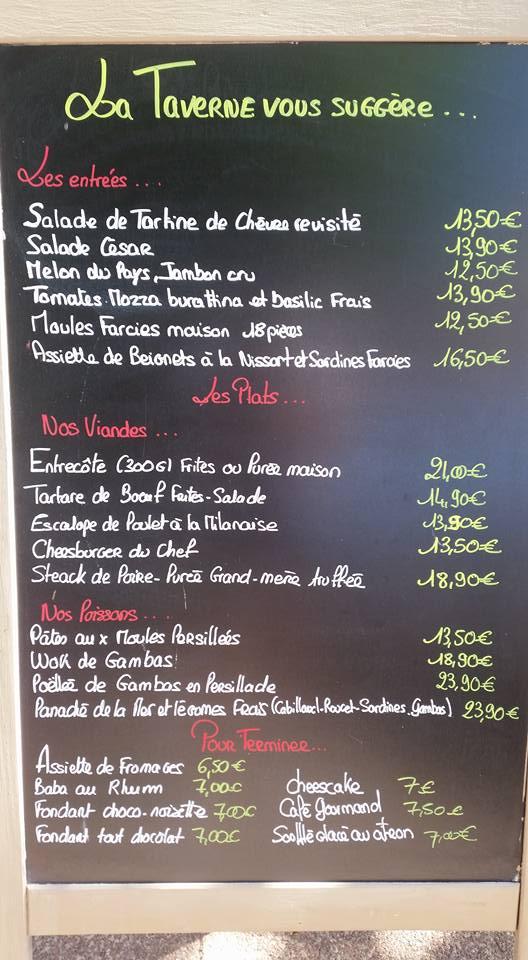 La Taverne vous suggère...
Les entrées...
Salade de Tartine de Chèvre revisité 13,50€
Salade César 13,90€
Melon du Pays, Jambon cru 12,50€
Tomates Mozza burattina et Basilic Frais 13,90€
Moules Farcies maison 18 pièces 12,50€
Assiette de Beignets à la Nissart et Sardines Farcies 16,50€
Les Plats...
Nos Viandes...
Entrecôte (300G) Frites ou Purée maison 21,00€
Tartare de Boeuf Frites-Salade 14,90€
Escalope de Poulet à la Milanaise 13,90€
Cheesburger du Chef 13,50€
Steack de Poire-Purée Grand-mère truffée 18,90€
Nos Poissons...
Pâtes aux Moules Persillées 13,50€
Wok de Gambas 18,90€
Poëllée de Gambas en Persillade 23,90€
Panaché de la Mer et légumes Frais (Cabillaud-Rouget-Sardines, Gambas) 23,90€
Pour Terminer...
Assiette de Fromages 6,50€
Baba au Rhum 7,00€ cheescake 7€
Fondant choco-noisette 7,00€ Café Gourmand 7,50€
Fondant tout chocolat 7,00€ Soufflé glacé au citron 7,00€